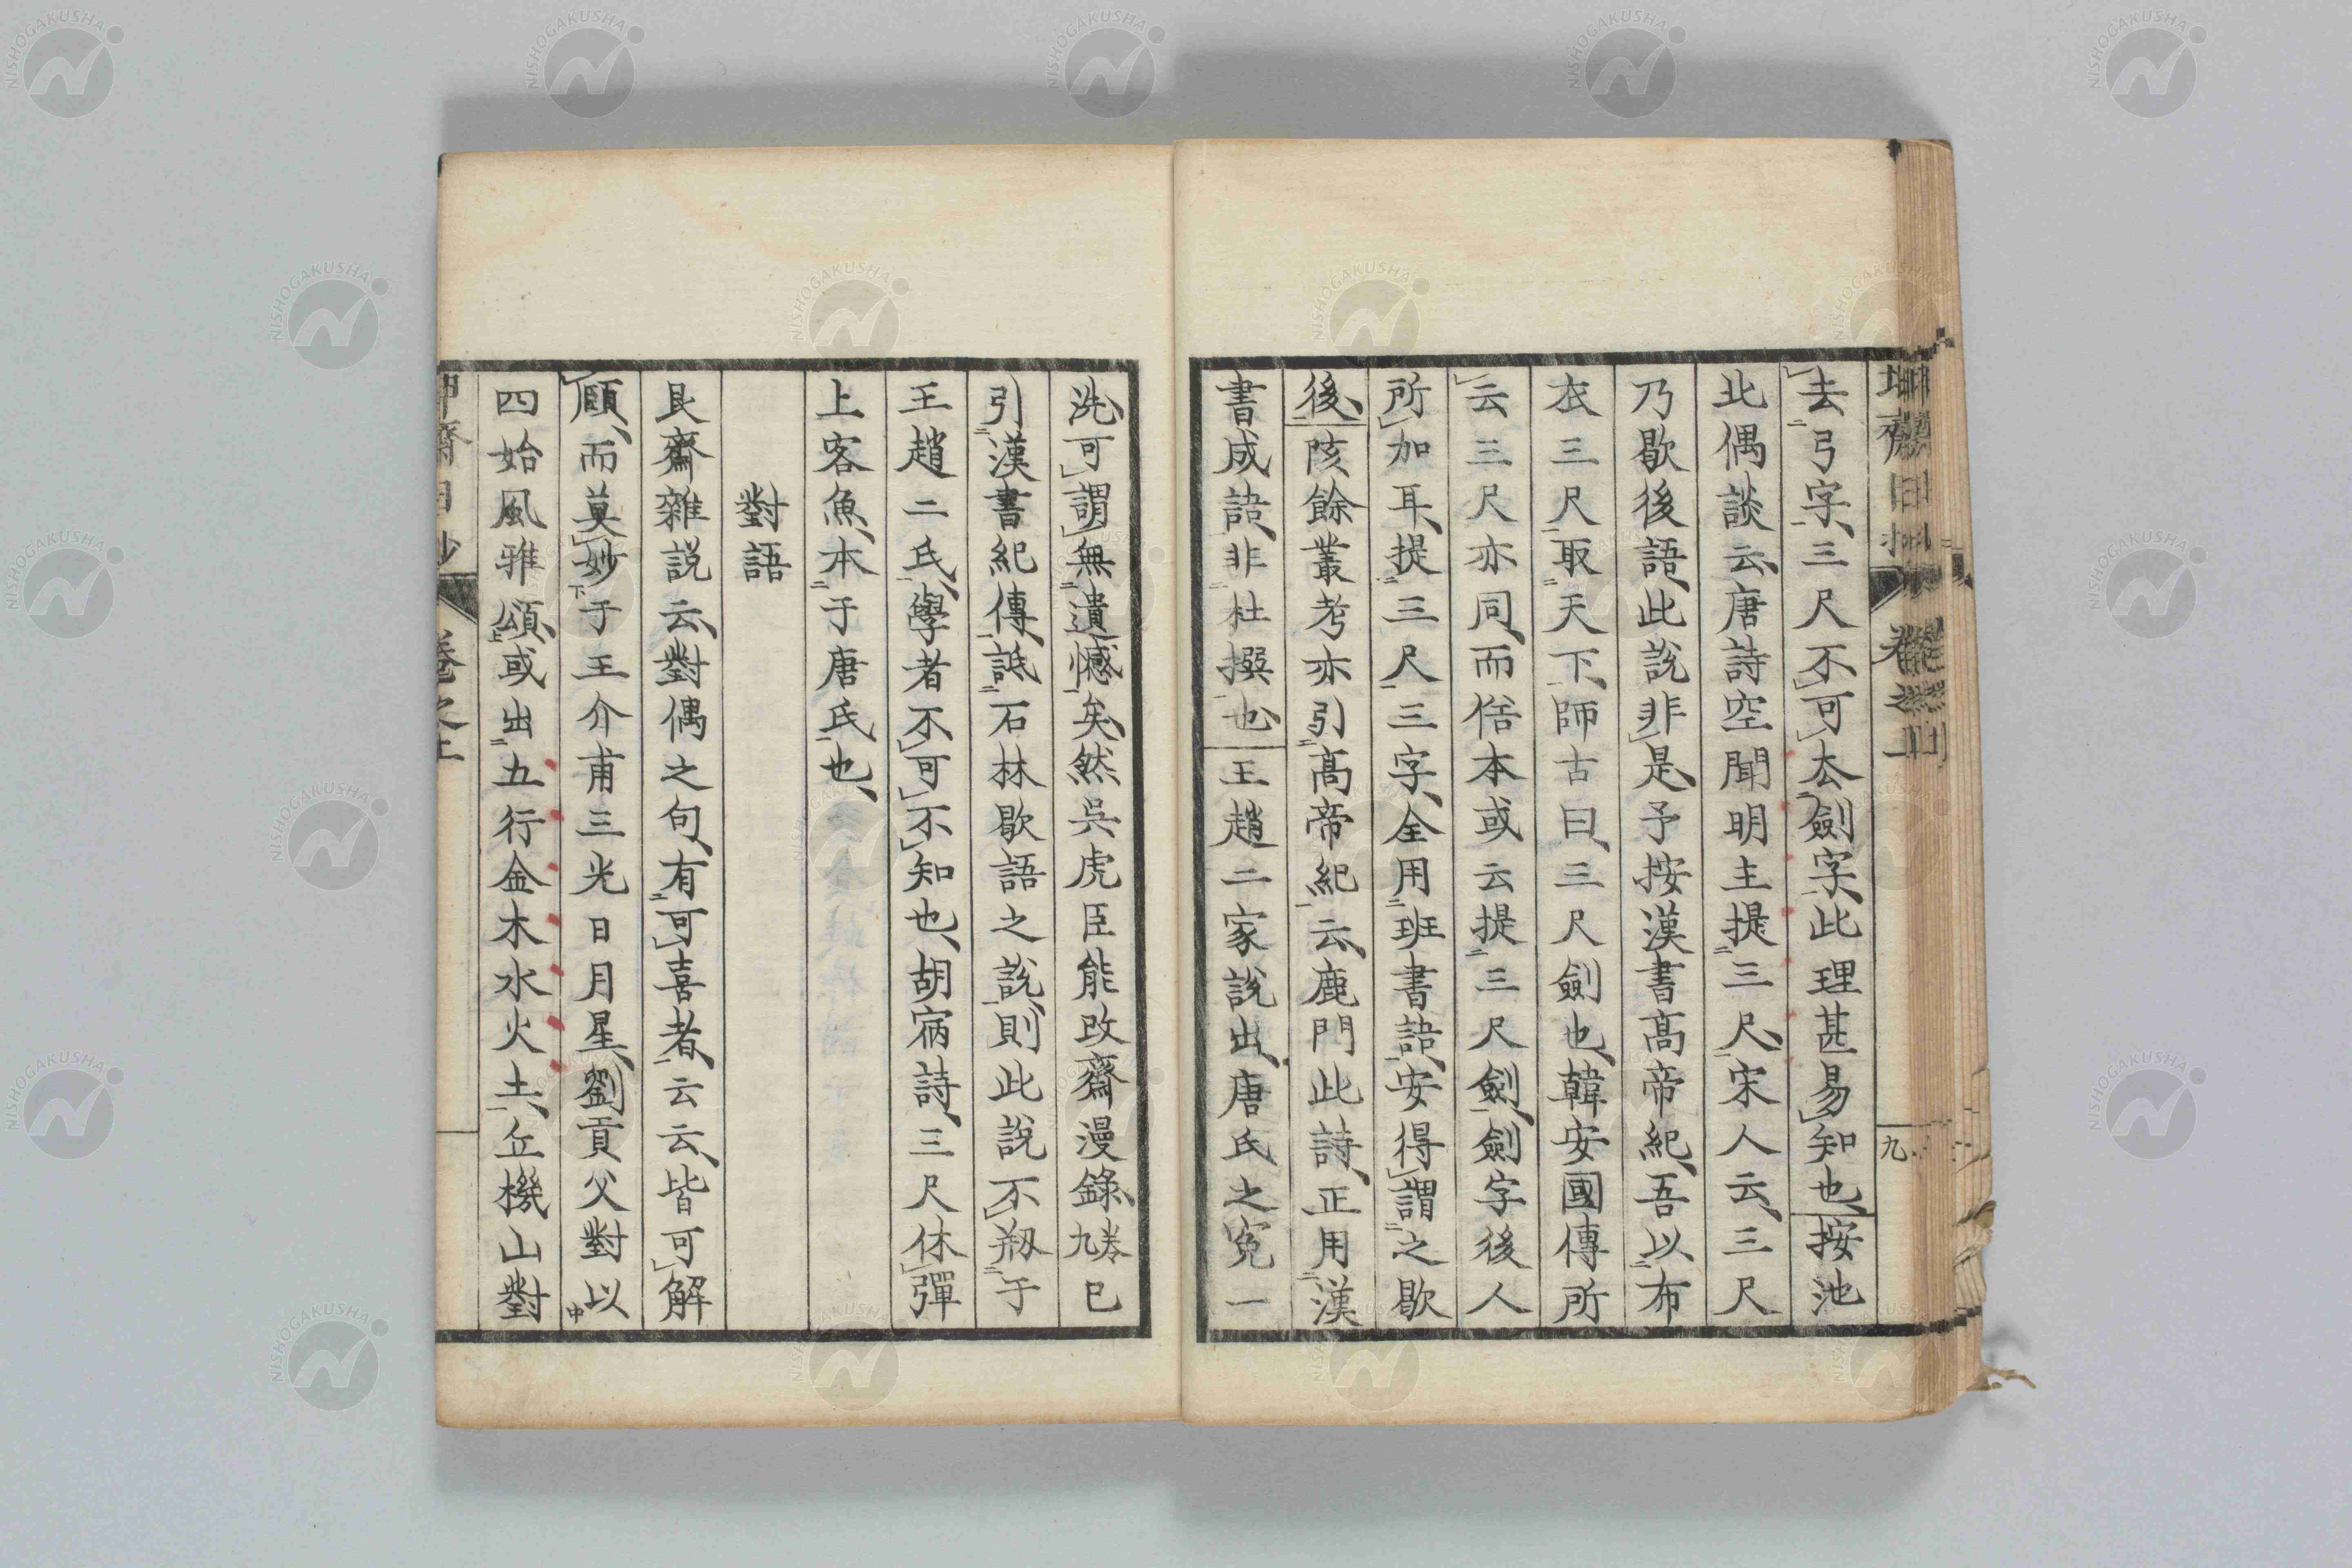 去弓字三尺不可去劍字此理甚易知也按池
北偶談云唐詩空聞明主提三尺宋人云三尺
乃歇後語此說非是予按漢書高帝紀吾以布
衣三尺取天下師古曰三尺劍也韓安國傳所
云三尺亦同而俗本或云提三尺劍劍字後人
所加耳提三尺三字全用班書語安得謂之歇
後陔餘叢考亦引高帝紀云鹿門此詩正用漢
書成語非杜撰也王趙二家說出唐氏之冤一
九
洗可謂無遺憾矣然吳虎臣能改齋漫錄卷九已
引漢書紀傳詆石林歇語之說則此說不剏于
王趙二氏學者不可不知也胡宿詩三尺休彈
上客魚本于唐氏也
對語
艮齋雜說云對偶之句有可喜者云云皆可解
頤而莫妙于王介甫三光日月星劉貢父對以
四始風雅頌或出五行金木水火土丘機山對
卷之上
NISHOGAKUSHA